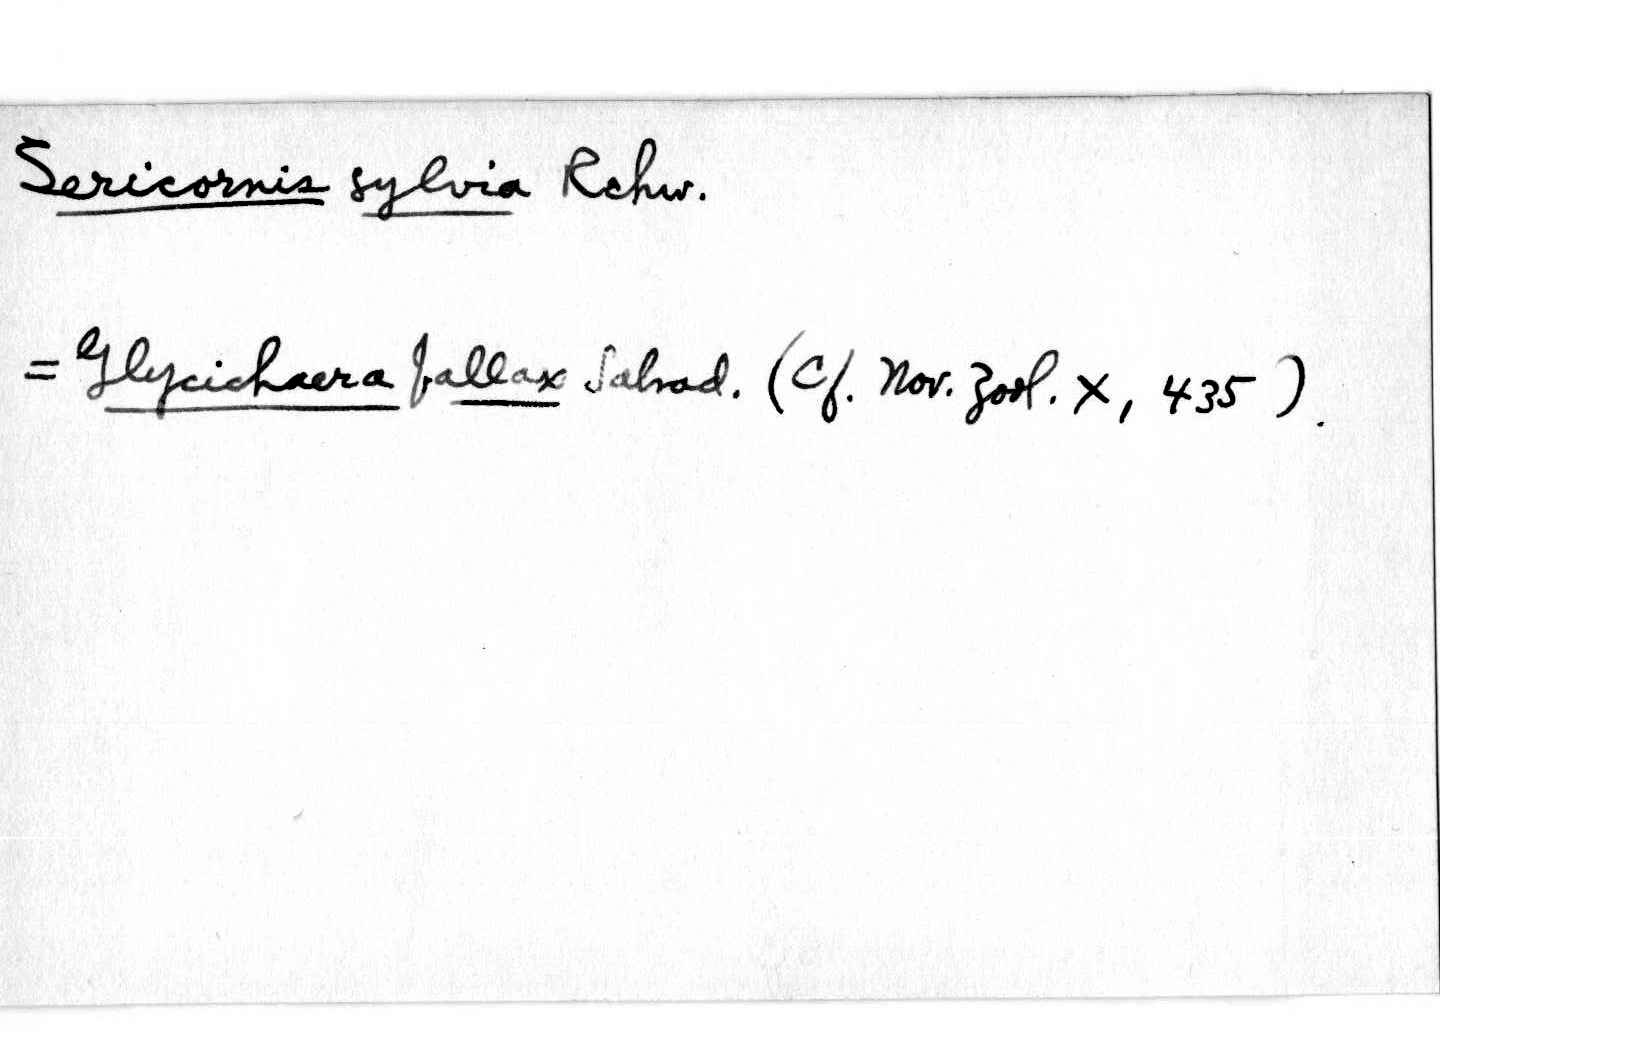 Sericornis sylvia Rchw.
= Glycichaera fallax Salvad. (Cf. Nov. Zool. X, 435).